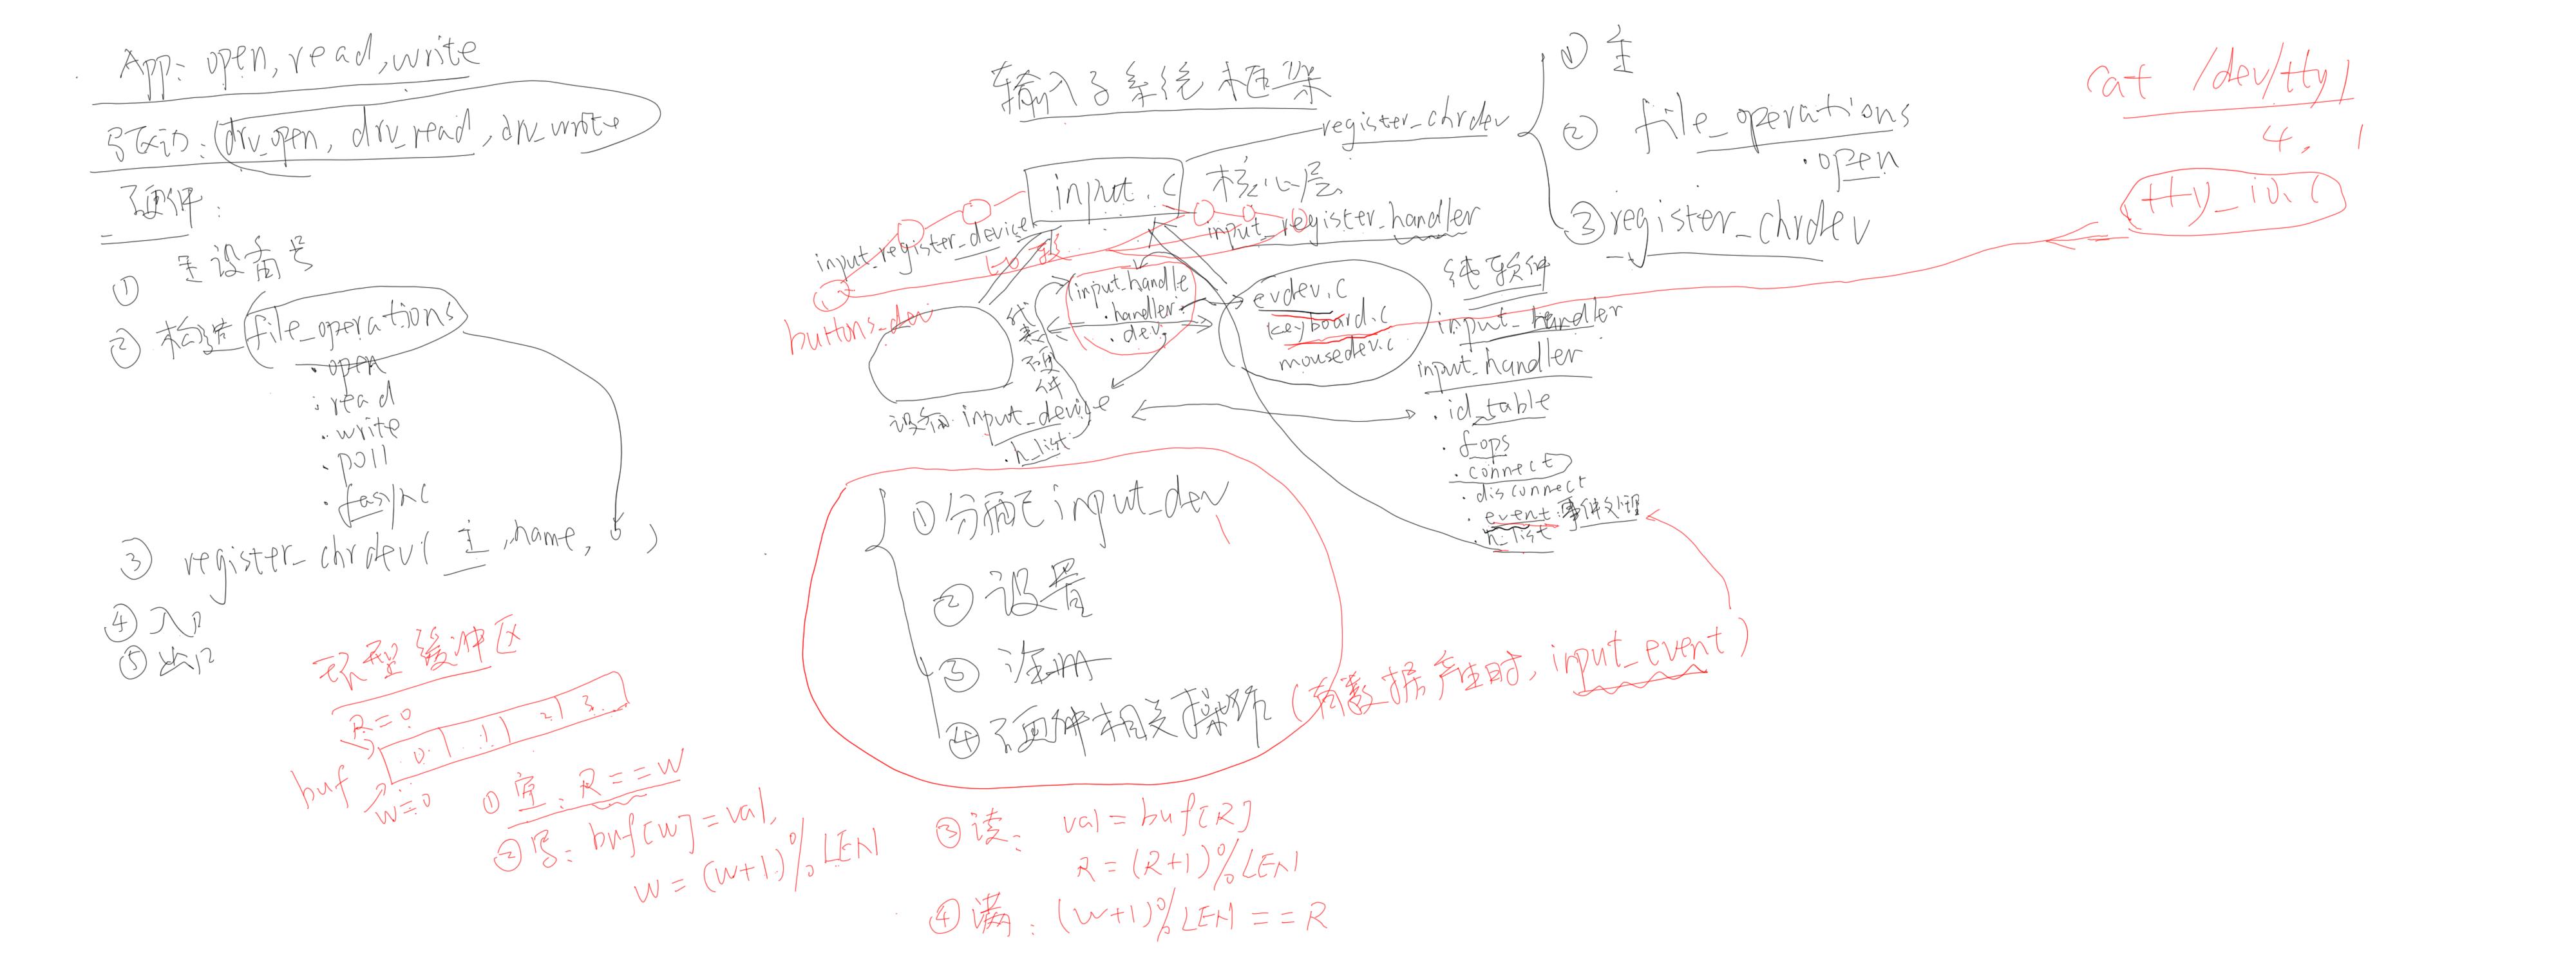 App: open, read, write
写驱动: (drv_open, drv_read, drv_write
硬件:
① 主设备号
② 构造 file_operations
.open
.read
.write
.poll
.fasync
③ register_chrdev( 主, name, )
④ 入口
⑤ 出口
环型缓冲区
R=0
0 1 2 3
buf
w=0
① 空: R==W
② 写: buf[w]=val,
w=(w+1)%LEN
③ 读: val=buf[R]
R=(R+1)%LEN
④ 满: (w+1)%LEN==R
输入子系统框架
input.c 核心层
register_chrdev
input_register_device
input_register_handler
比较
buttons_dev
代表硬件
input_handle
.handler
.dev
evdev.c
keyboard.c
mousedev.c
纯软件
input_handler
设备 input_device
.h_list
input_handler
.id_table
.fops
.connect
.disconnect
.event: 事件处理
.h_list
① 分配 input_dev
② 设置
③ 注册
④ 硬件相关操作 (有数据产生时, input_event)
① 主
② file_operations
.open
③ register_chrdev
cat /dev/tty1
4, 1
tty_io.c